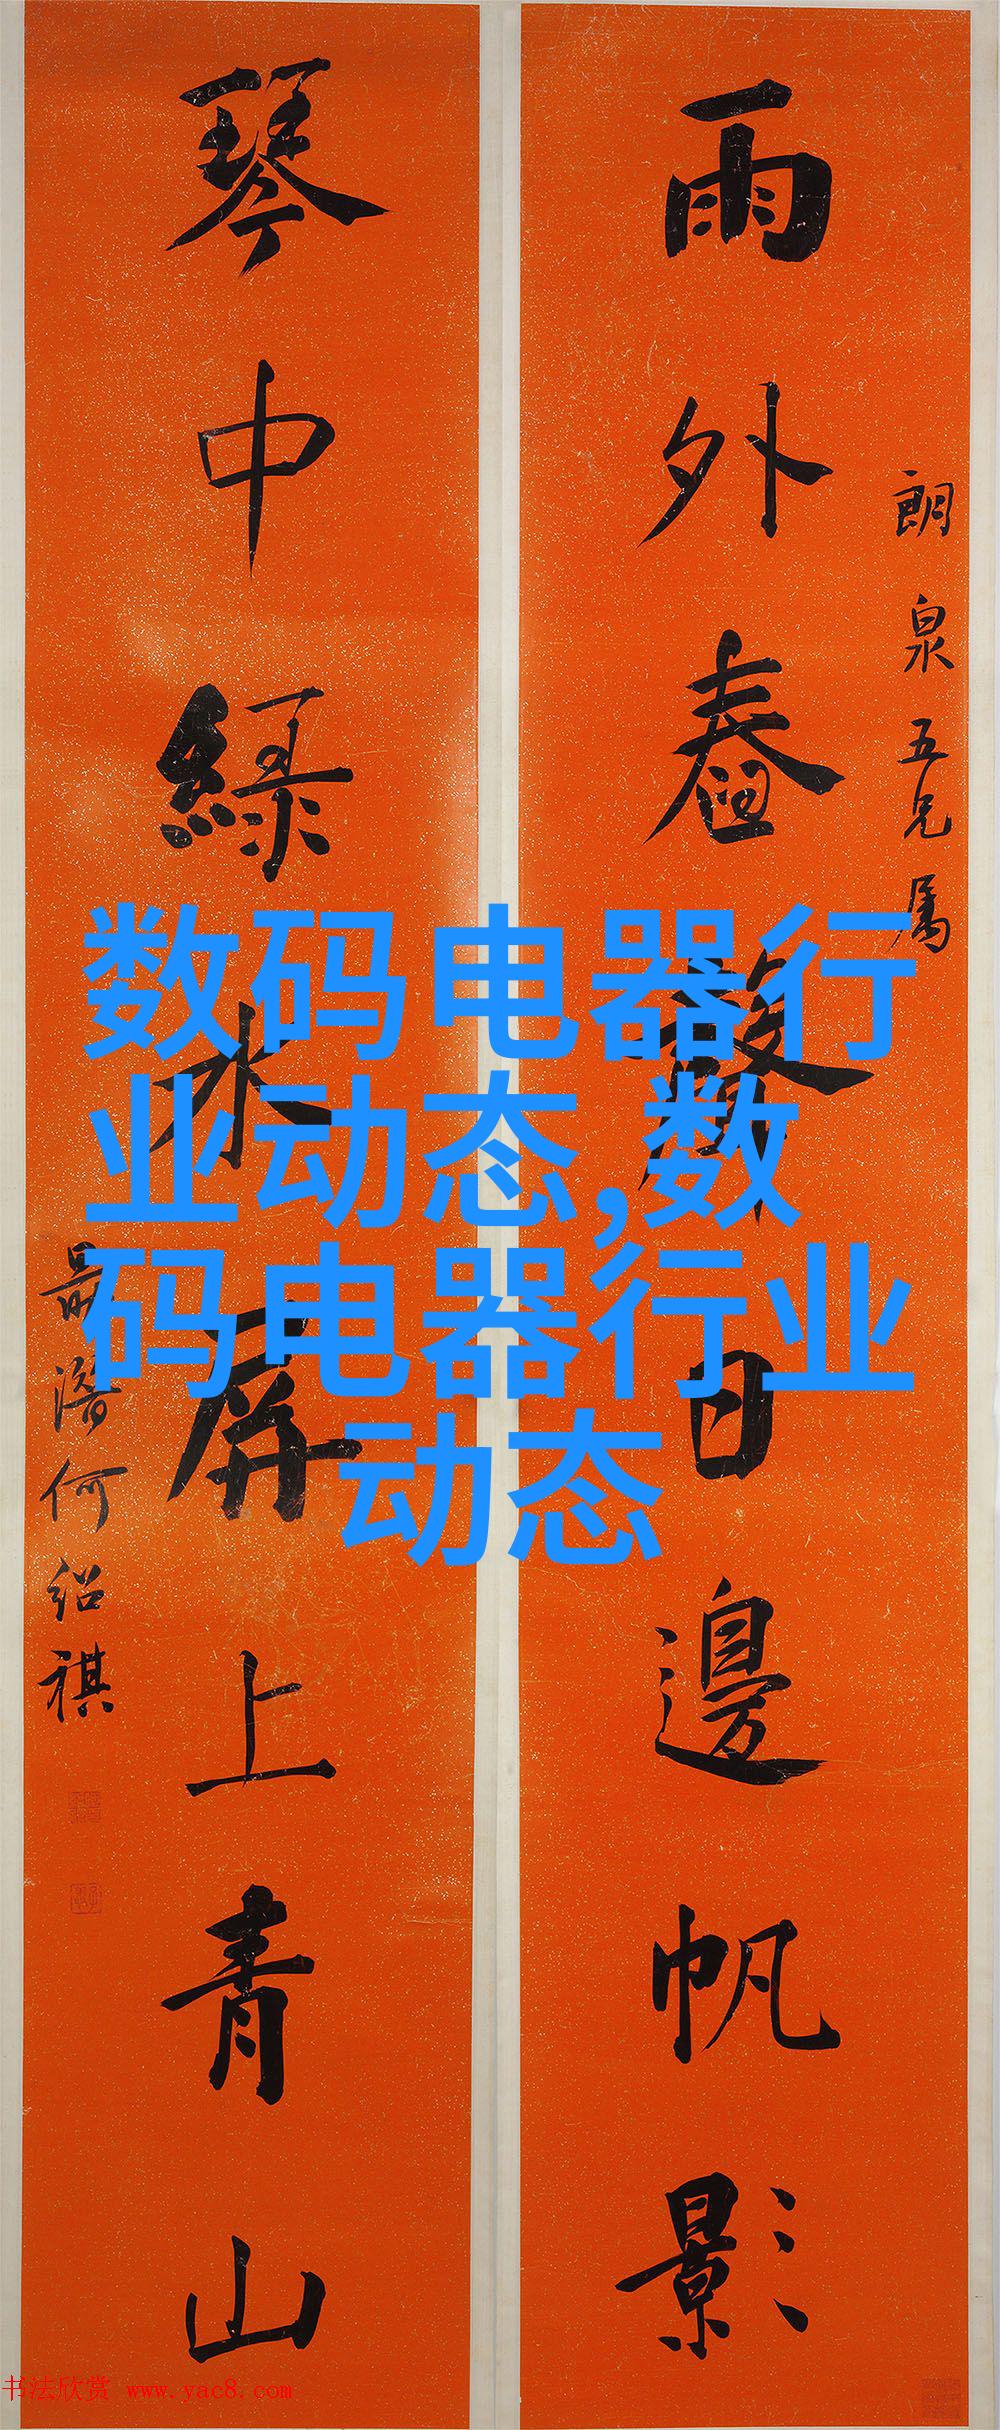 朗泉五兄属
雨外舂聲日邊帆影
琴中綠水屏上青山
何紹祺
数码电器行
业动态,数
码电器行业
动态
书法欣赏 www.yac8.com